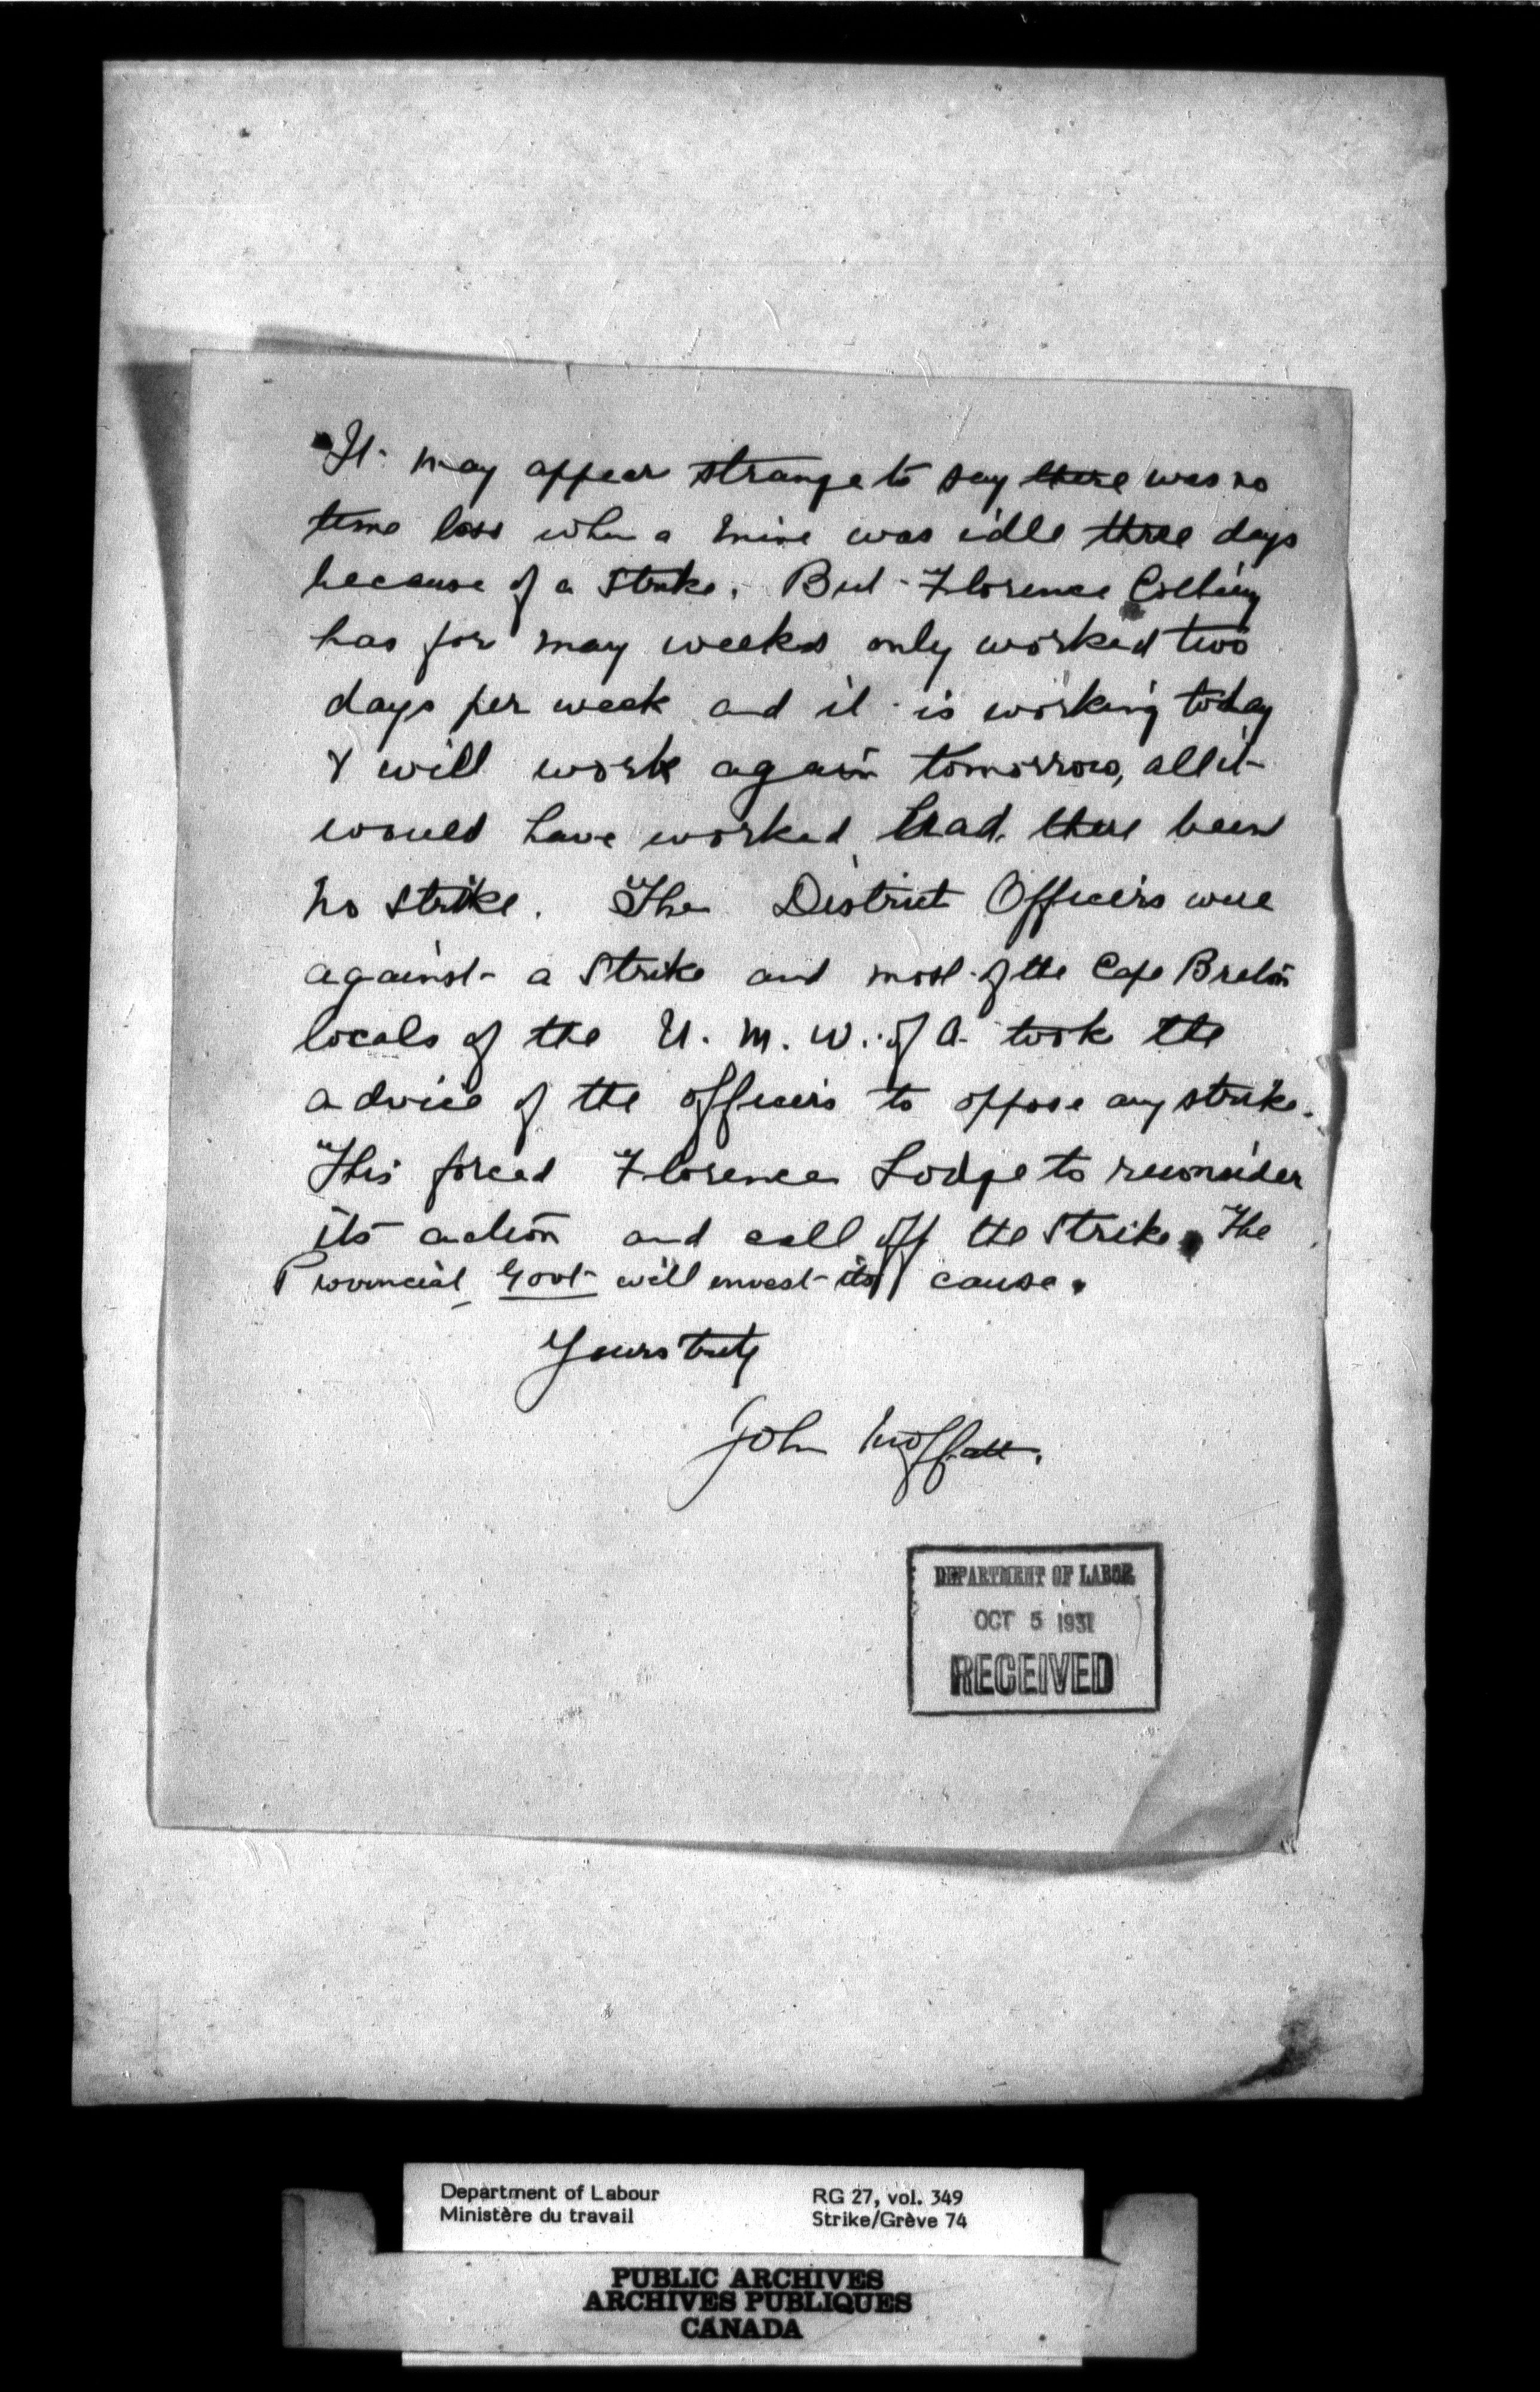 It may appear strange to say there was no
time loss when a mine was idle three days
because of a strike. But Florence Colliery
has for may weeks only worked two
days per week and it is working today
& will work again tomorrow, all it
would have worked had there been
no strike. The District Officers were
against a strike and most of the Cape Breton
locals of the U. M. W. of A. took the
advice of the officers to oppose any strike.
This forced Florence Lodge to reconsider
its action and call off the strike. The
Provincial Govt will invest its cause.
Yours truly
John Moffatt.
DEPARTMENT OF LABOR
OCT 5 1931
RECEIVED
Department of Labour
Ministère du travail
RG 27, vol. 349
Strike/Grève 74
PUBLIC ARCHIVES
ARCHIVES PUBLIQUES
CANADA